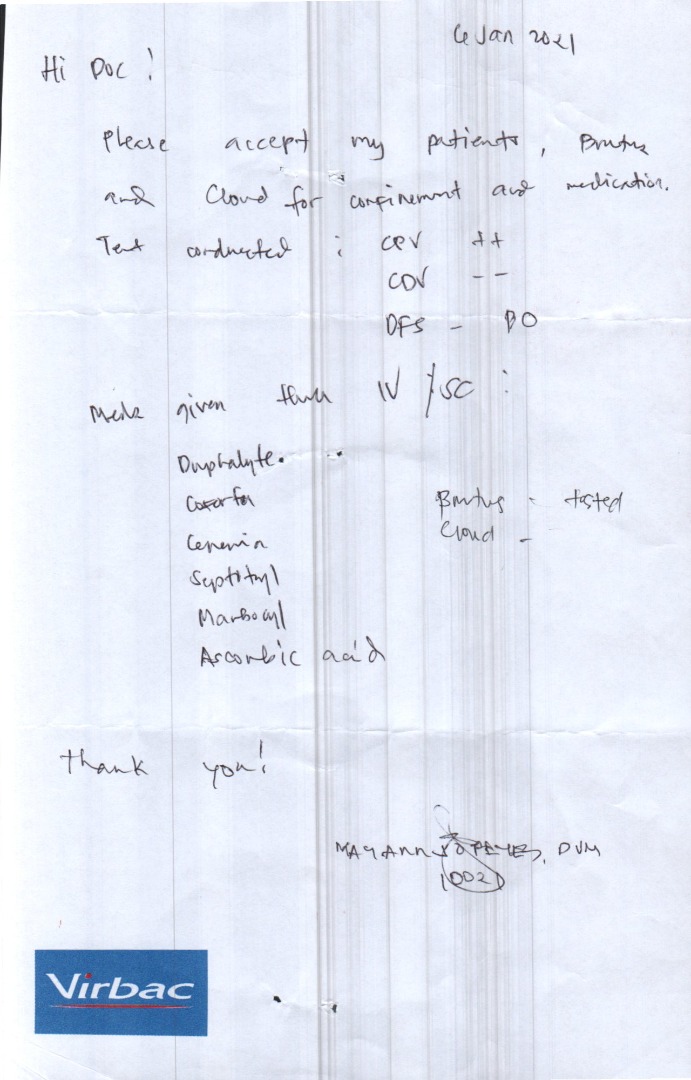 6 Jan 2021
Hi Doc!
Please accept my patients, Brutus
and Cloud for confinement and medication.
Test conducted : CPV ++
CDV --
DFS - PO
Meds given thru IV / SC :
Duphalyte
Cerenia
Septotryl
Marbocyl
Ascorbic acid
Brutus - tested
Cloud -
Thank you!
MAYANN, DVM
Virbac